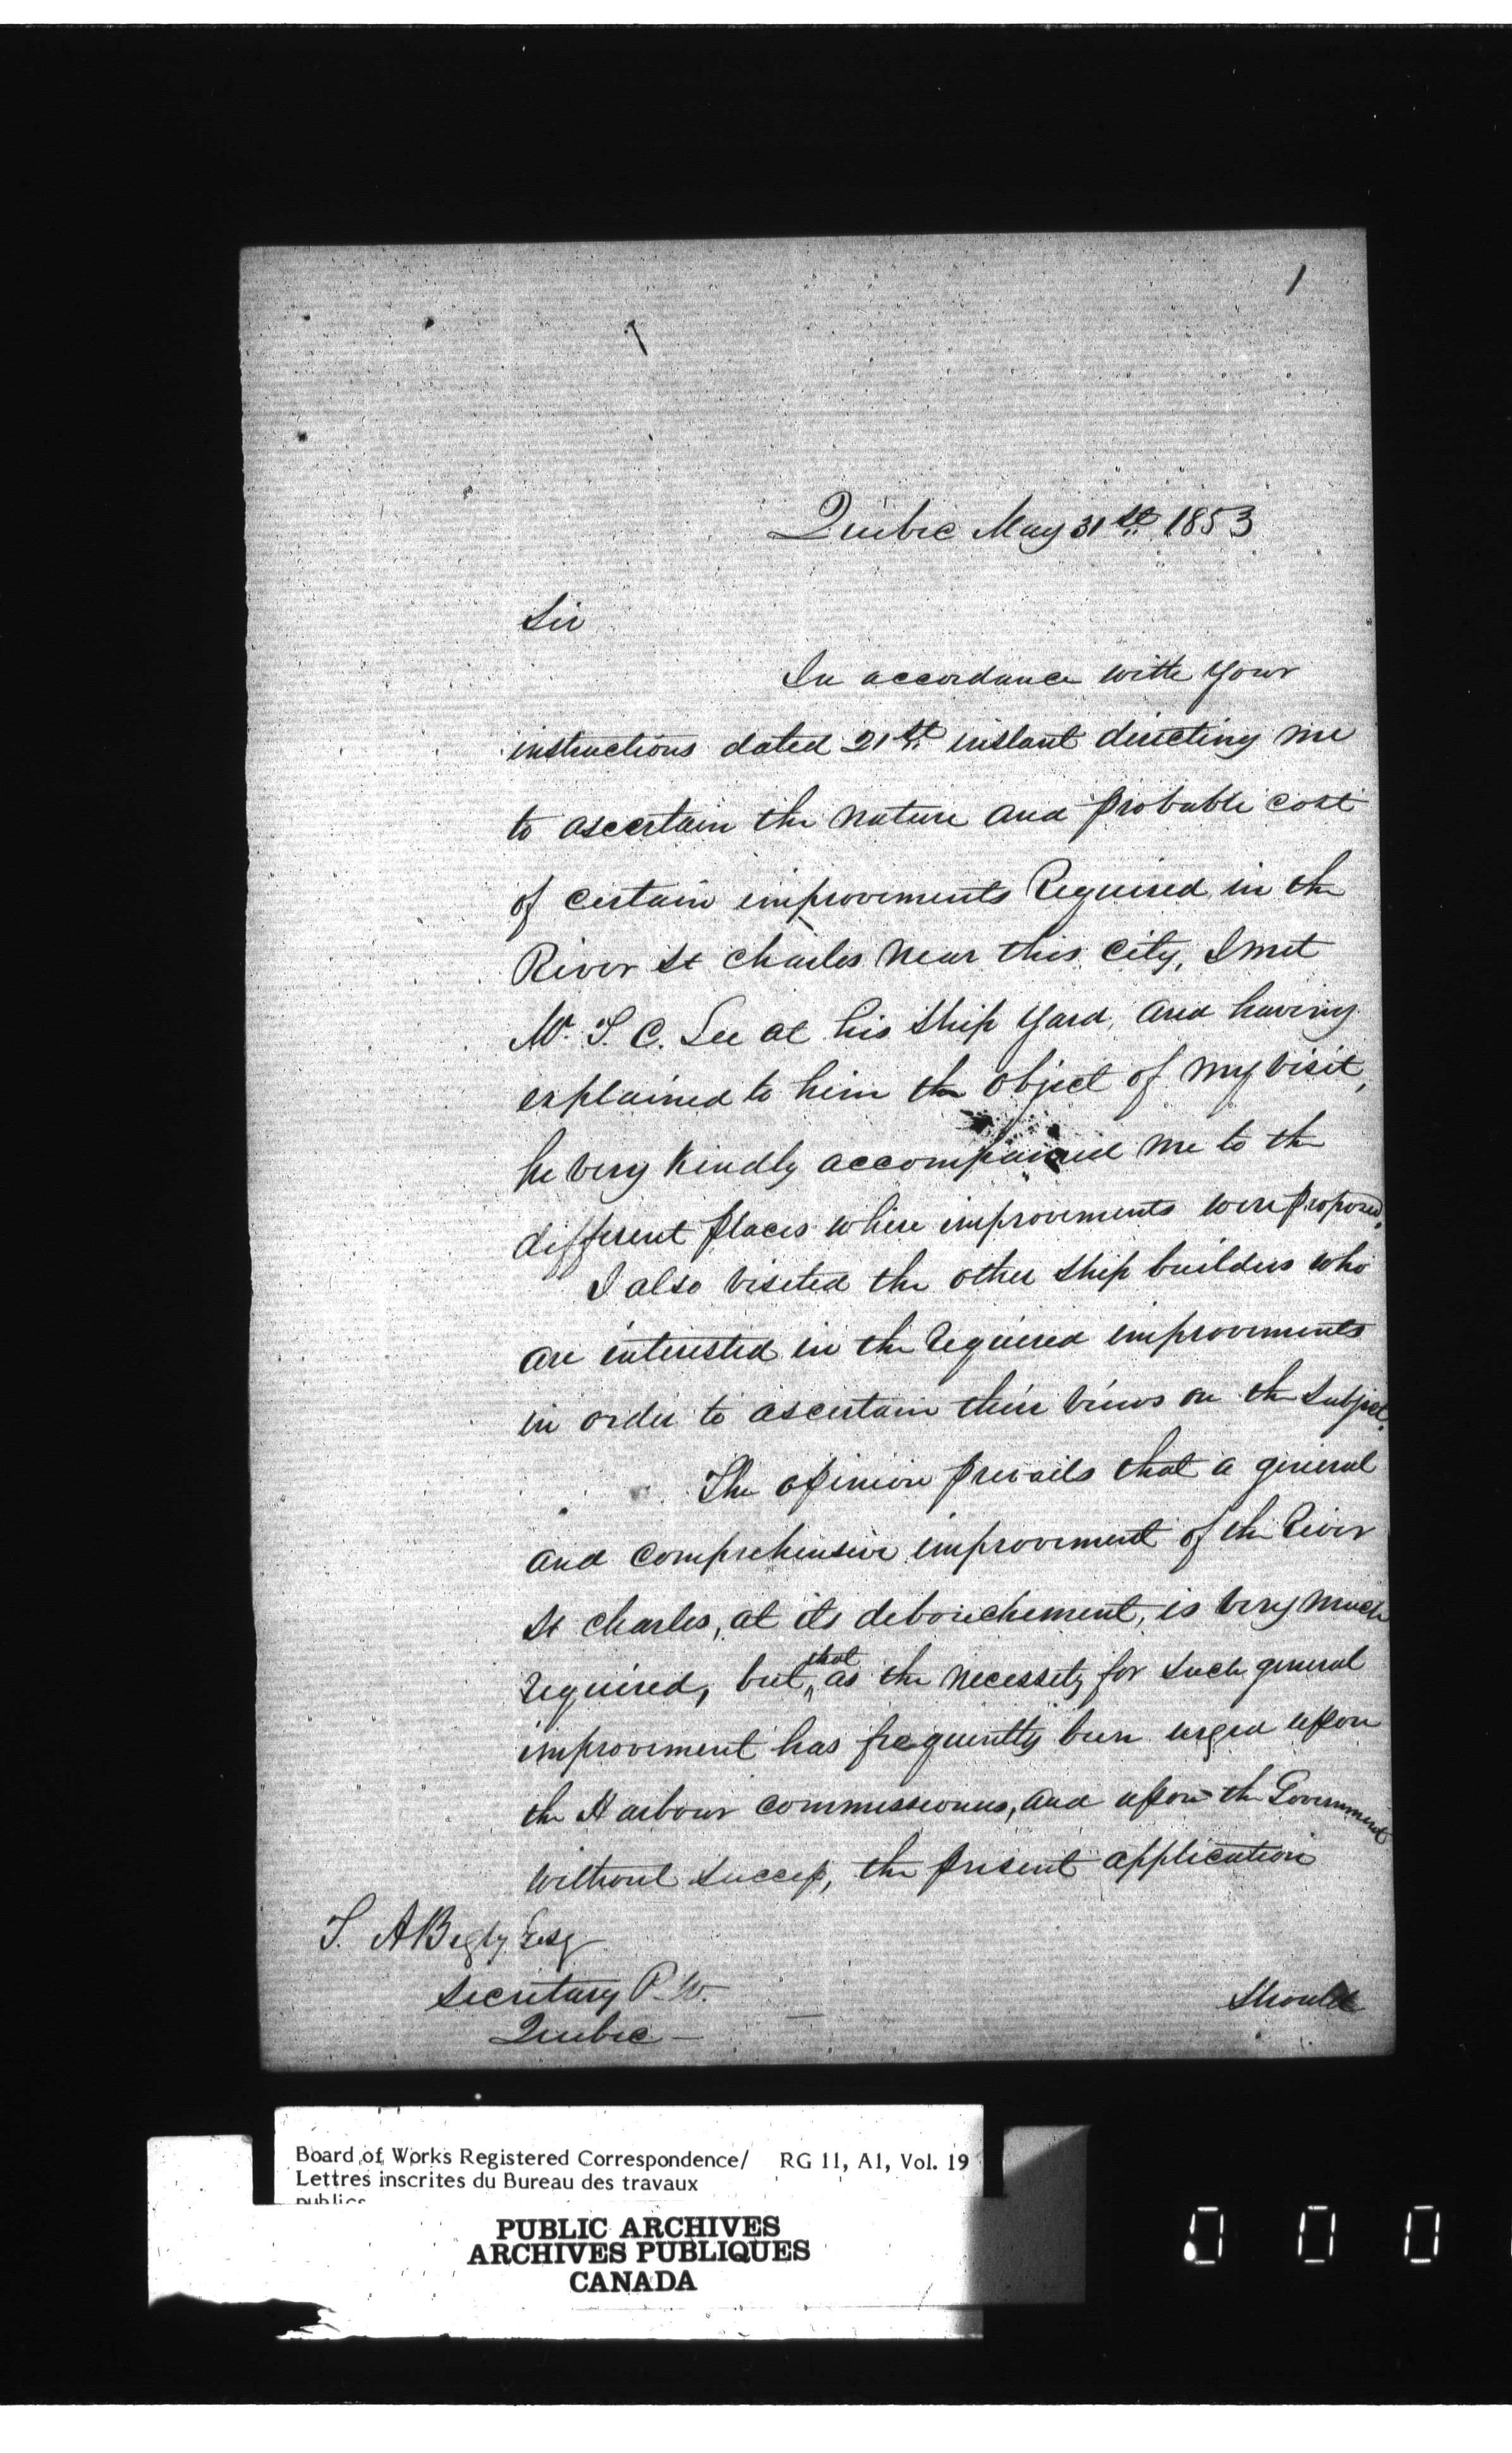 1
Quebec May 31st 1853
Sir
In accordance with your
instructions dated 21st instant directing me
to ascertain the nature and probable cost
of certain improvements Required in the
River St Charles near this City, I met
Mr. T. C. Lee at his Ship Yard, and having
explained to him the object of my visit,
he very kindly accompanied me to the
different places where improvements were proposed.
I also visited the other Ship builders who
are interested in the Required improvements
in order to ascertain their views on the Subject.
The opinion prevails that a general
and comprehensive improvement of the River
St Charles, at its debouchement, is very much
required, but that as the necessity for such general
improvement has frequently been urged upon
the Harbour Commissioners, and upon the Government
without success, the present application
T. A Begly Esq
Secretary P. W.
Quebec —
Should
Board of Works Registered Correspondence/ RG 11, A1, Vol. 19
Lettres inscrites du Bureau des travaux
publics
PUBLIC ARCHIVES
ARCHIVES PUBLIQUES
CANADA
0 0 0